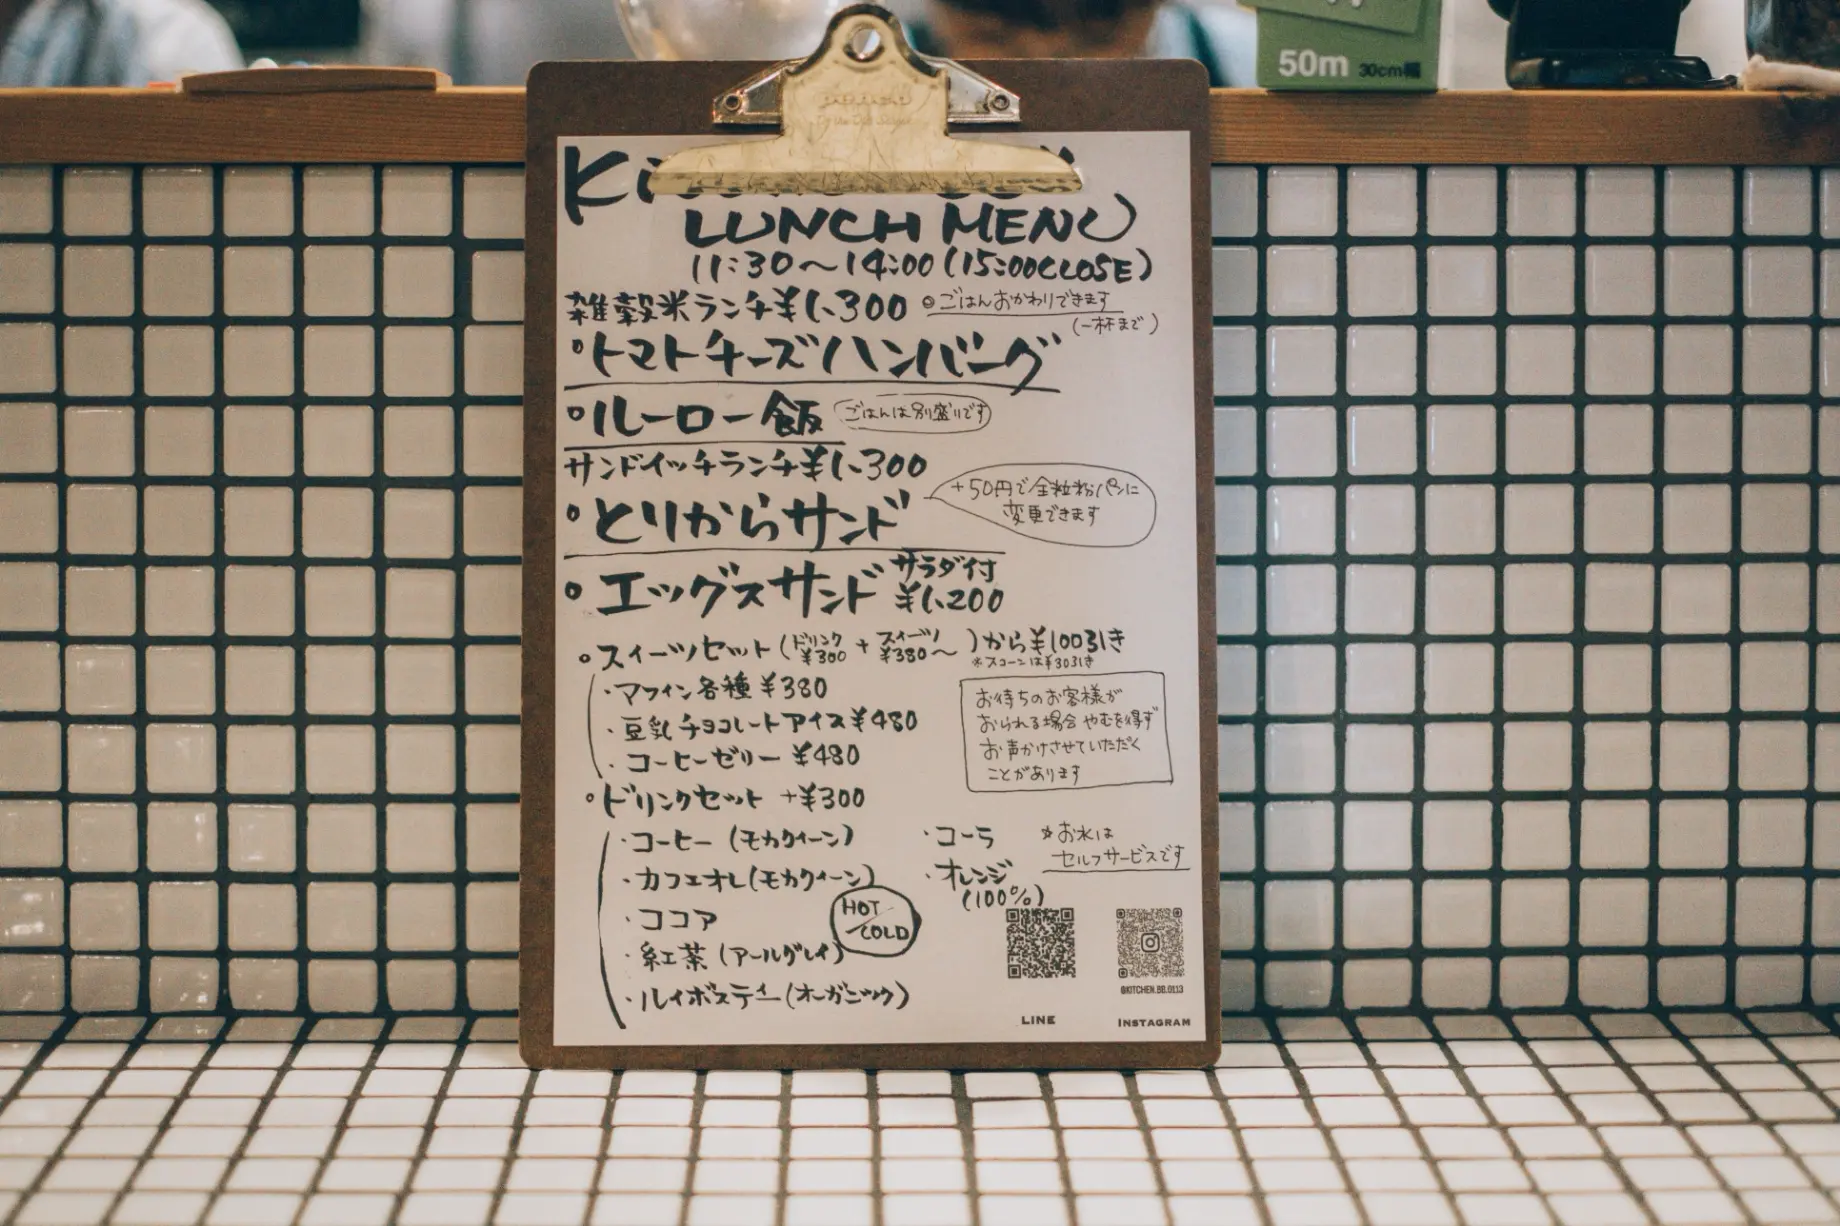 50m 30cm幅
Ki
LUNCH MENU
11:30〜14:00(15:00CLOSE)
雑穀米ランチ¥1,300 ◎ごはんおかわりできます
(一杯まで)
・トマトチーズハンバーグ
・ルーロー飯 ごはんは別盛りです
サンドイッチランチ¥1,300
+50円で全粒粉パンに
変更できます
・とりからサンド
・エッグスサンド サラダ付
¥1,200
・スイーツセット(ドリンク¥300 + スイーツ¥380〜)から¥100引き
※スコーンは¥30引き
・マフィン各種 ¥380
・豆乳チョコレートアイス¥480
・コーヒーゼリー ¥480
お待ちのお客様が
おられる場合やむを得ず
お声かけさせていただく
ことがあります
・ドリンクセット +¥300
・コーヒー(モカクイーン)
・カフェオレ(モカクイーン)
・ココア
・紅茶(アールグレイ)
・ルイボスティー(オーガニック)
HOT
/COLD
・コーラ
・オレンジ
(100%)
☆お水は
セルフサービスです
@KITCHEN.BB.0113
LINE
INSTAGRAM